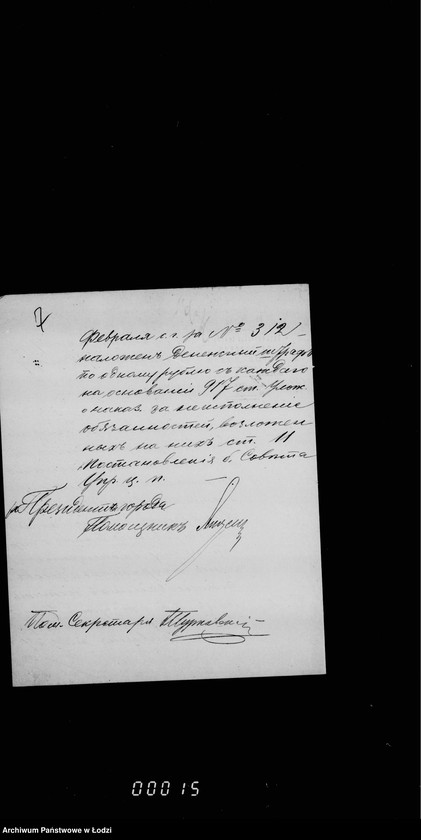 7
Февраля с. г. за № 312
наложенъ денежный штрафъ
по одному рублю съ каждаго
на основаніи 917 ст. Улож.
о наказ. за неисполненіе
обязанностей, возложен
ныхъ на нихъ ст. 11
Постановленія б. Совѣта
Упр. Ц. П.
Президента города
Помощникъ
Пом. Секретаря
00015
Archiwum Państwowe w Łodzi